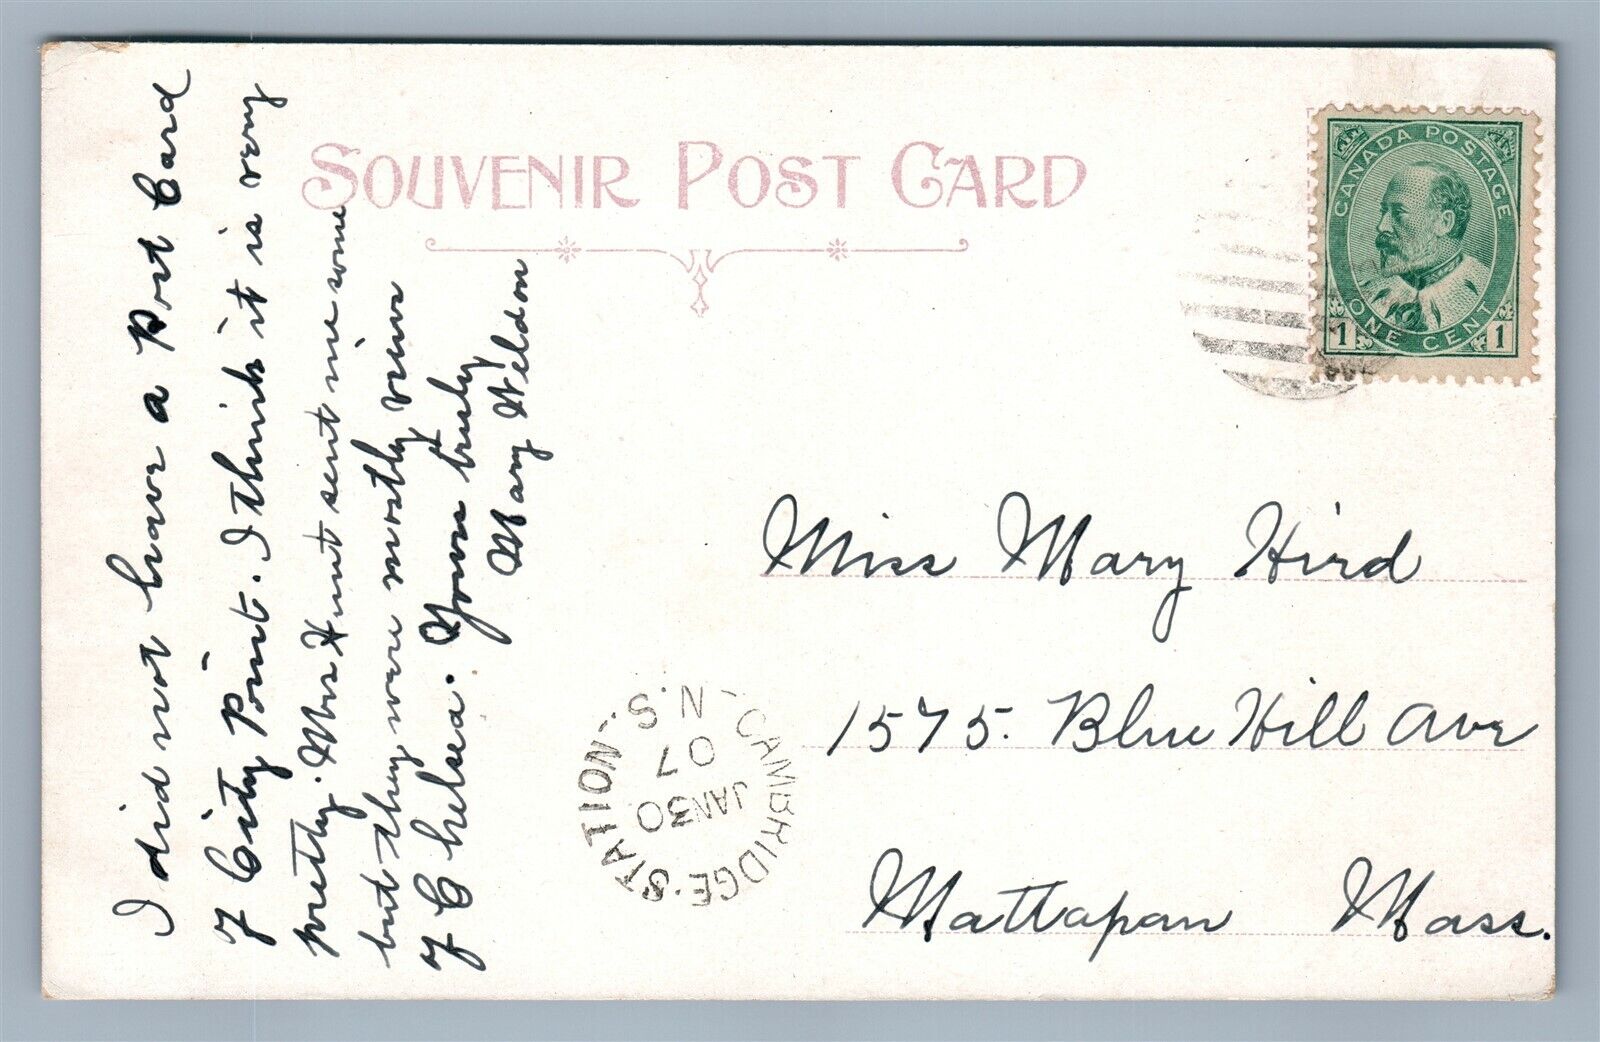 SOUVENIR POST CARD
CANADA POSTAGE
ONE CENT
1 1
I did not have a Post Card
of City Point. I think it is very
pretty. Mrs Hunt sent me some
but they were mostly views
of Chelsea. Yours truly
Mary Weldon
Miss Mary Hird
1575. Blue Hill Ave
Mattapan Mass.
CAMBRIDGE·STATION
JAN 30
07
N.S.